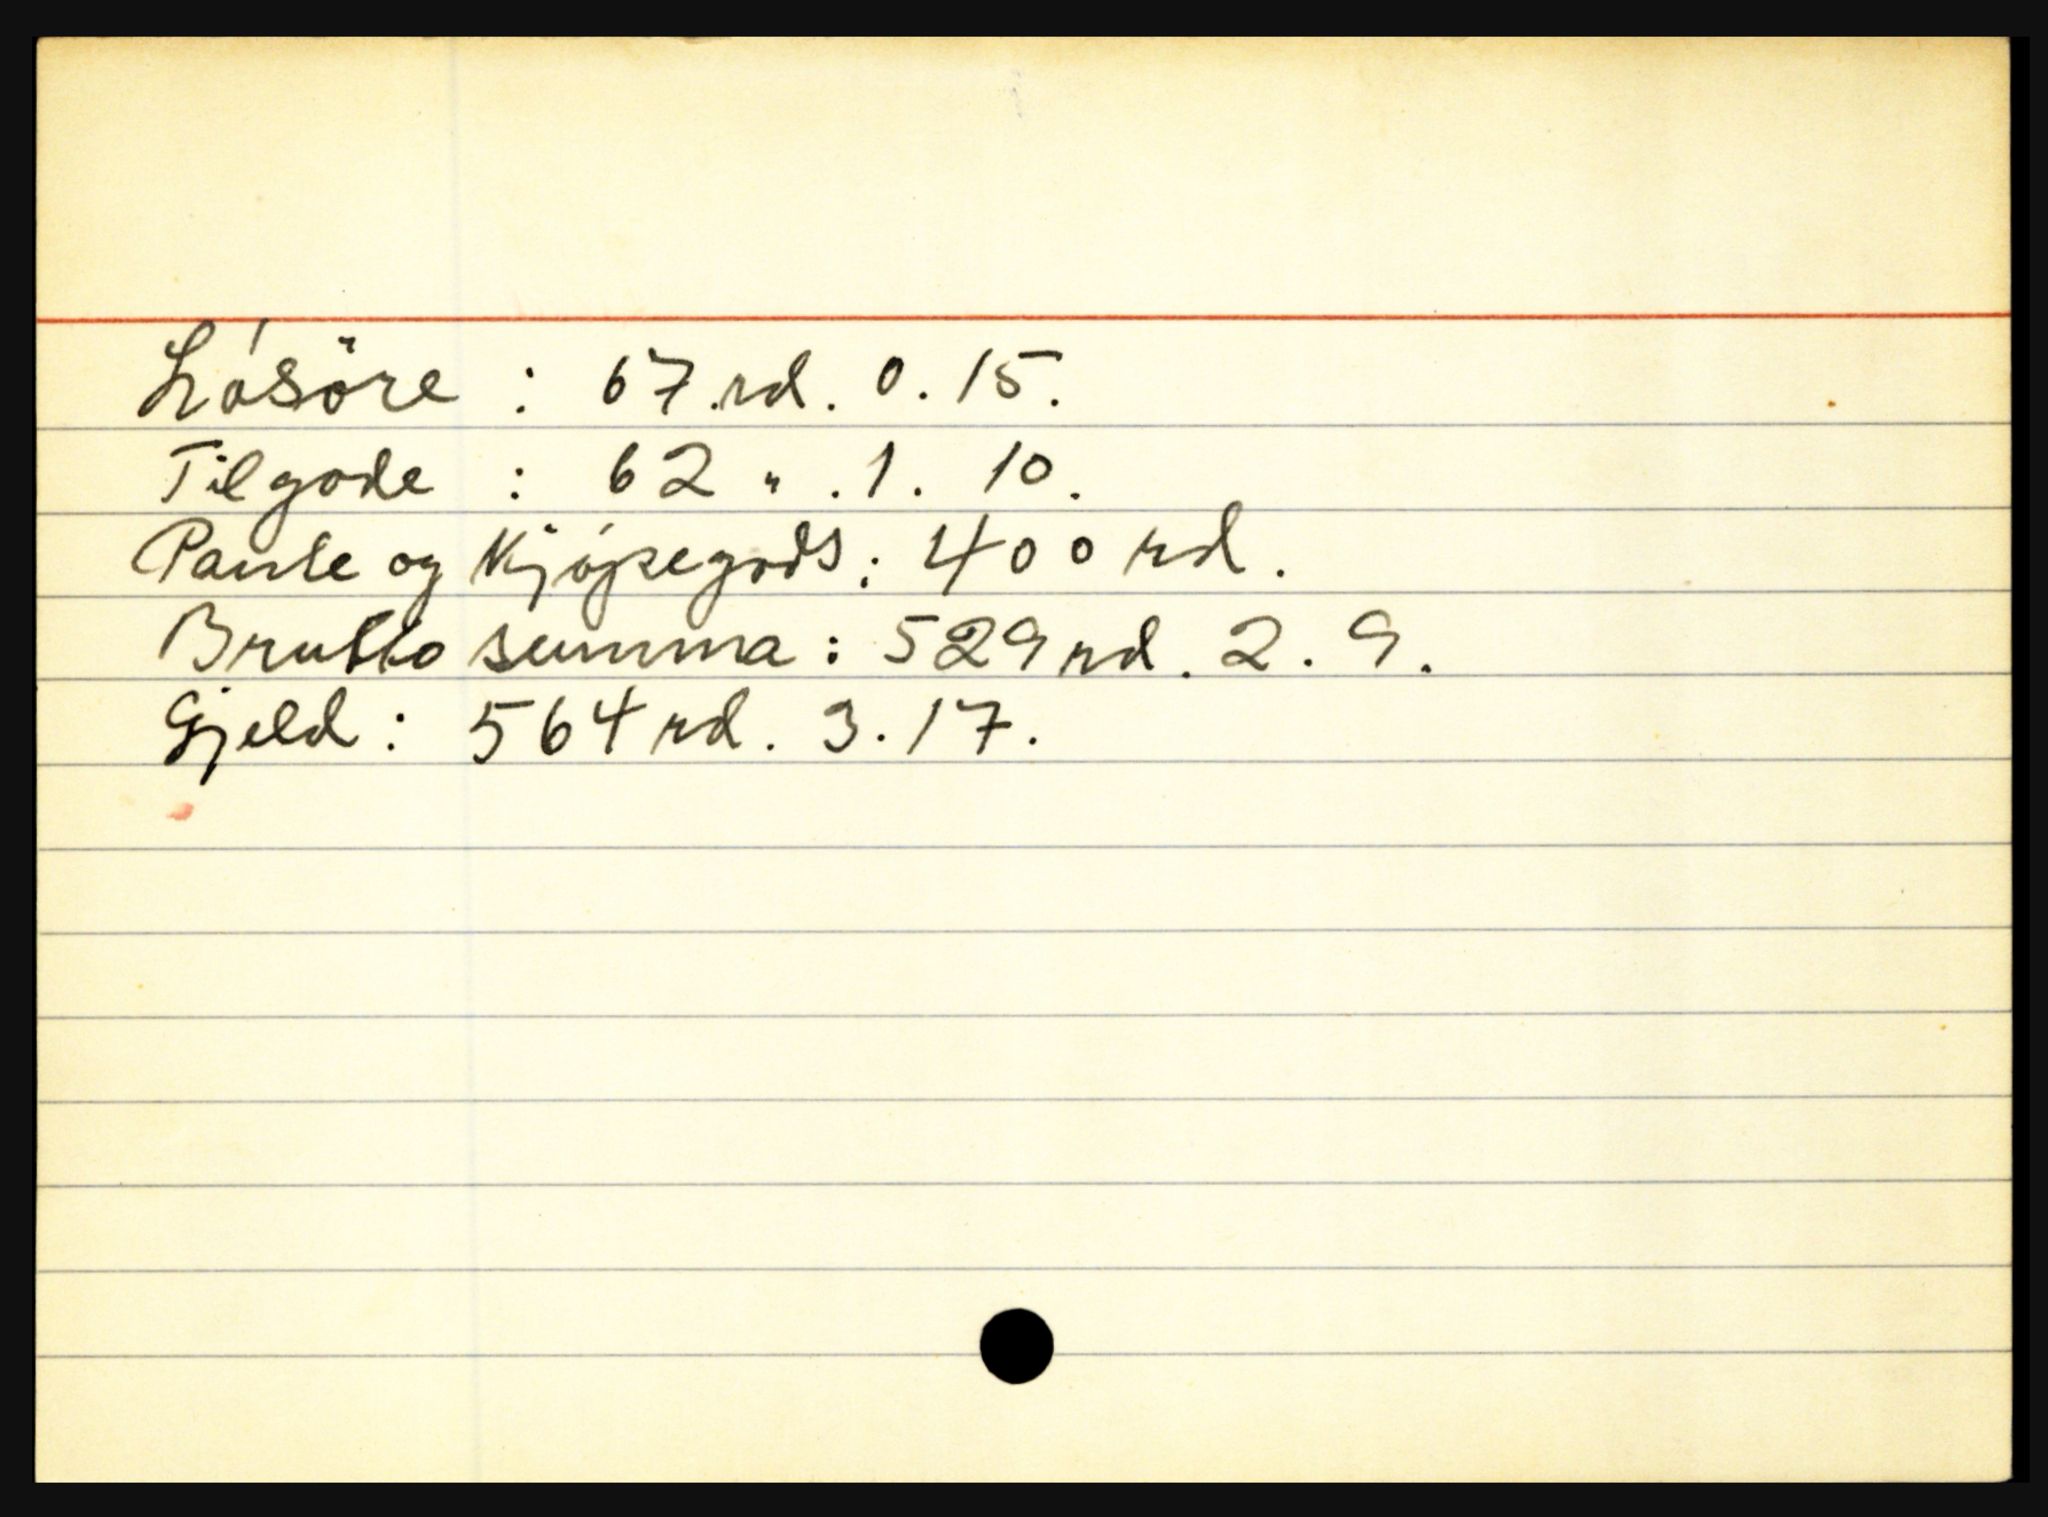 Lósöre : 67 rd. 0. 15.
Tilgode : 62 " . 1. 10.
Pante og Kjópegods : 400 rd.
Brutto summa : 529 rd. 2. 9.
Gjeld : 564 rd. 3. 17.